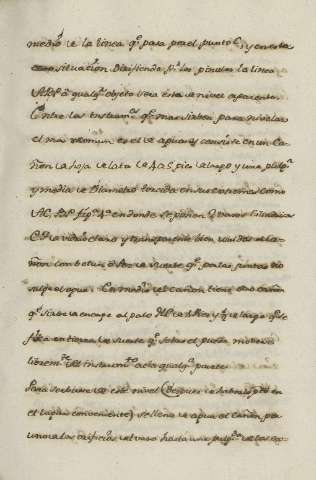 medio de la linea q.e pasa por el punto C, y en esta
situación Dirigiendo p.r las pinulas la linea
à qualq.r objeto sera este de nivel aparente.
Entre los instrum.tos q.e mas sirben para nivelar
el mas comun es el de agua que consiste en un Ca-
ñon de hoja de lata de 4 à 5 pies de largo y una pulg.a
y media de Diametro torcido en sus extremos como
AC, fig.a 4.a en donde se ponen 2 vasos Cilindricos
C D de vidrio claro y transparente bien unidos al ca-
ñon con betun de suerte q.e por las juntas no
salga el agua. En medio del cañon tiene otro cañon
q.e sirbe de encaje al palo de 4 Pies y ½ de largo q.e se
fixa en tierra de suerte q.e sobre el pueda moverse
librem.te el instrum.to acia qualq.r parte
Para serbirse de este nivel (Despues de haberse p.to en
el lugar conveniente) se llena de agua el cañon por
uno de los orificios del vaso hasta una pulg.a de los ex-